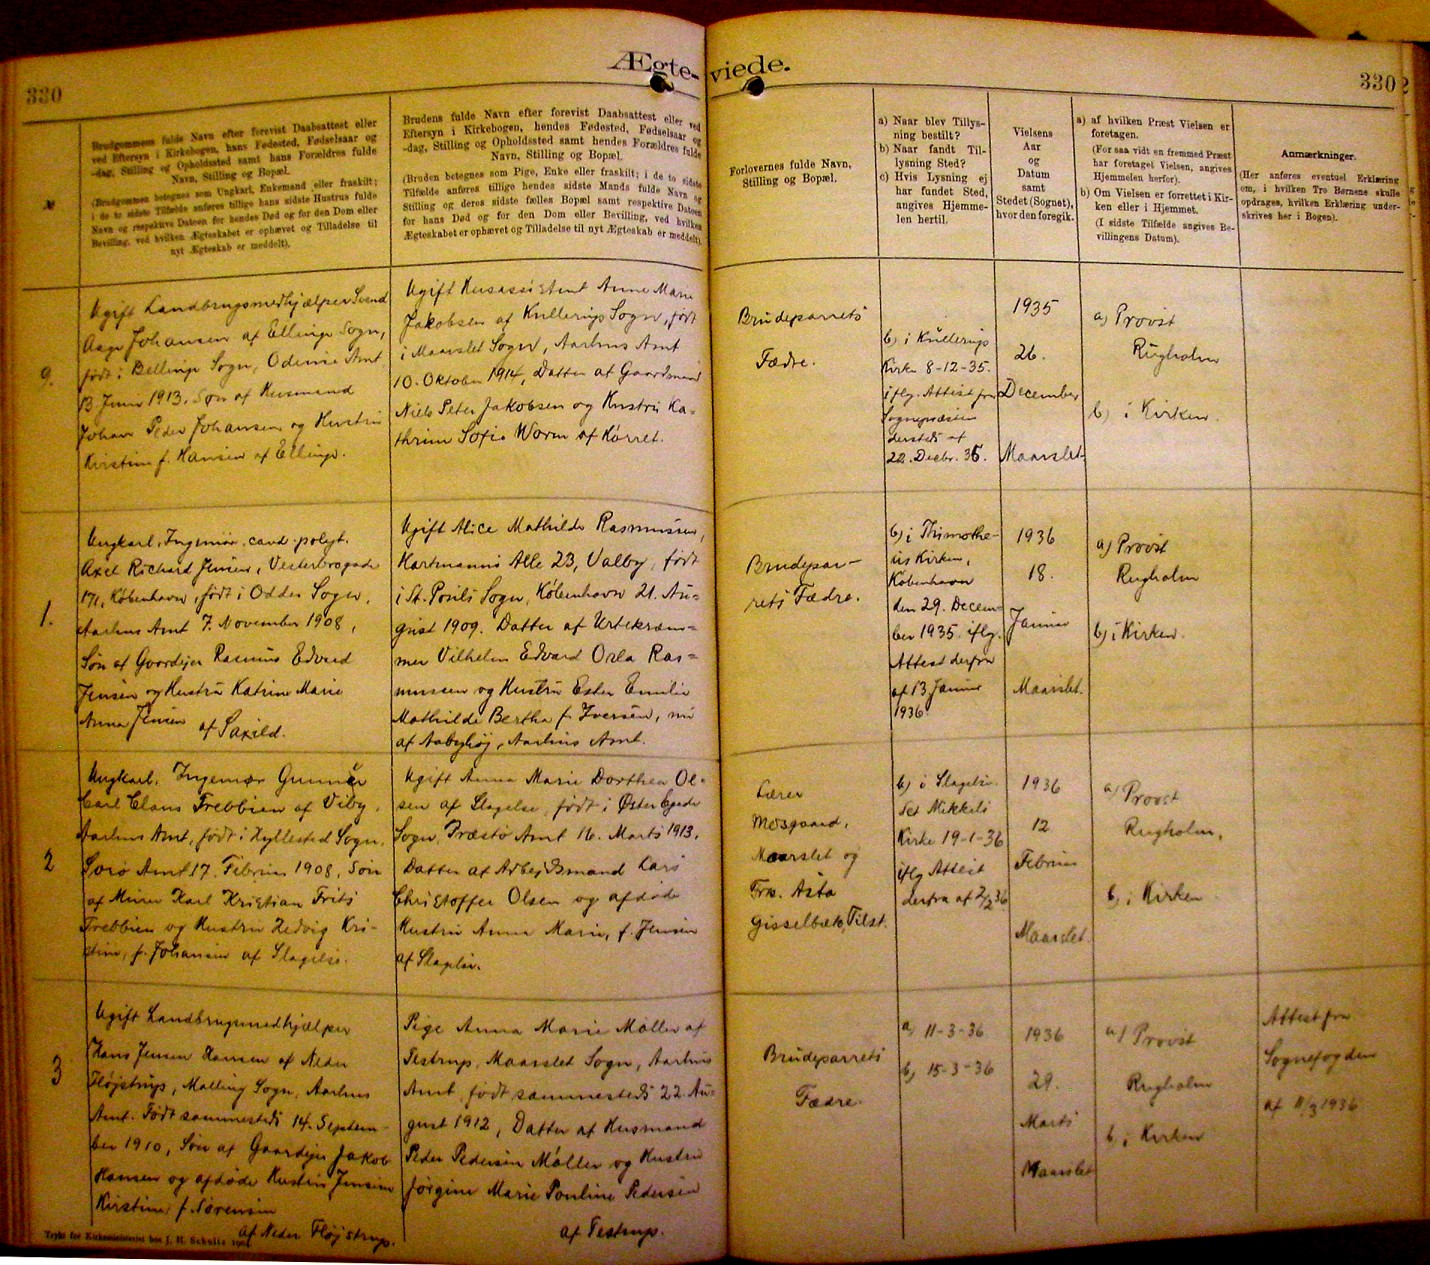 330
Ægte-
viede.
330
№
Brudgommens fulde Navn efter forevist Daabsattest eller
ved Eftersyn i Kirkebogen, hans Fødested, Fødselsaar og
-dag, Stilling og Opholdssted samt hans Forældres fulde
Navn, Stilling og Bopæl.
(Brudgommen betegnes som Ungkarl, Enkemand eller fraskilt;
i de to sidste Tilfælde anføres tillige hans sidste Hustrus fulde
Navn og respektive Datoen for hendes Død og for den Dom eller
Bevilling, ved hvilken Ægteskabet er ophævet og Tilladelse til
nyt Ægteskab er meddelt).
Brudens fulde Navn efter forevist Daabsattest eller ved
Eftersyn i Kirkebogen, hendes Fødested, Fødselsaar og
-dag, Stilling og Opholdssted samt hendes Forældres fulde
Navn, Stilling og Bopæl.
(Bruden betegnes som Pige, Enke eller fraskilt; i de to sidste
Tilfælde anføres tillige hendes sidste Mands fulde Navn og
Stilling og deres sidste fælles Bopæl samt respektive Datoen
for hans Død og for den Dom eller Bevilling, ved hvilken
Ægteskabet er ophævet og Tilladelse til nyt Ægteskab er meddelt).
Forlovernes fulde Navn,
Stilling og Bopæl.
a) Naar blev Tillys-
ning bestilt?
b) Naar fandt Til-
lysning Sted?
c) Hvis Lysning ej
har fundet Sted,
angives Hjemme-
len hertil.
Vielsens
Aar
og
Datum
samt
Stedet (Sognet),
hvor den foregik.
a) af hvilken Præst Vielsen er
foretagen.
(For saa vidt en fremmed Præst
har foretaget Vielsen, angives
Hjemmelen herfor).
b) Om Vielsen er forrettet i Kir-
ken eller i Hjemmet.
(I sidste Tilfælde angives Be-
villingens Datum).
Anmærkninger.
(Her anføres eventuel Erklæring
om, i hvilken Tro Børnene skulle
opdrages, hvilken Erklæring under-
skrives her i Bogen).
9.
Ugift Landbrugsmedhjælper Svend
Aage Johansen af Ellinge Sogn,
født i Bellinge Sogn, Odense Amt
13 Juni 1913. Søn af Husmand
Johan Peder Johansen og Hustru
Kirstine f. Hansen af Ellinge.
Ugift Husassistent Anne Marie
Jakobsen af Kullerup Sogn, født
i Maarslet Sogn, Aarhus Amt
10. Oktober 1914, Datter af Gaardmand
Niels Peter Jakobsen og Hustru Ka-
thrine Sofie Worm af Hørret.
Brudeparrets
Fædre.
b) i Kullerup
Kirke 8-12-35.
iflg. Attest fra
Sognepræsten
dersteds af
22. Decbr. 35.
1935
26.
December
Maarslet.
a) Provst
Rugholm
b) i Kirken.
1.
Ungkarl, Ingeniør, cand. polyt.
Axel Richard Jensen, Vesterbrogade
171, København, født i Odder Sogn,
Aarhus Amt 7. November 1908,
Søn af Gaardejer Rasmus Edvard
Jensen og Hustru Katrine Marie
Anna Jensen af Saxild.
Ugift Alice Mathilde Rasmussen,
Hartmanns Alle 23, Valby, født
i St. Pouls Sogn, København 21. Au-
gust 1909. Datter af Urtekræm-
mer Vilhelm Edvard Orla Ras-
mussen og Hustru Ester Emilie
Mathilde Bertha f. Iversen, nu
af Aabyhøj, Aarhus Amt.
Brudepar-
rets Fædre.
b) i Thimothe-
us Kirken,
København
den 29. Decem-
ber 1935 iflg.
Attest derfra
af 13 Januar
1936.
1936
18.
Januar
Maarslet.
a) Provst
Rugholm
b) i Kirken.
2
Ungkarl, Ingeniør Gunner
Carl Claus Trebbien af Viby,
Aarhus Amt, født i Hyllested Sogn,
Sorø Amt 17. Februar 1908, Søn
af Murer Karl Kristian Frits
Trebbien og Hustru Hedvig Kri-
stine, f. Johansen af Slagelse.
Ugift Anna Marie Dorthea Ol-
sen af Slagelse, født i Øster Egede
Sogn Præstø Amt 16. Marts 1913,
Datter af Arbejdsmand Lars
Christoffer Olsen og afdøde
Hustru Anna Marie, f. Jensen
af Slagelse.
Lærer
Mosgaard,
Maarslet og
Frk. Asta
Gisselbæk, Tilst.
b) i Slagelse
Sct Mikkels
Kirke 19-1-36
iflg Attest
derfra af 2/2 36
1936
12
Februar
Maarslet.
a) Provst
Rugholm,
b) i Kirken
3
Ugift Landbrugsmedhjælper
Hans Jensen Hansen af Neder
Fløjstrup, Malling Sogn, Aarhus
Amt. Født sammesteds 14. Septem-
ber 1910, Søn af Gaardejer Jakob
Hansen og afdøde Hustru Jensine
Kirstine f. Sørensen
af Neder Fløjstrup.
Pige Anna Marie Møller af
Testrup, Maarslet Sogn, Aarhus
Amt, født sammesteds 22. Au-
gust 1912, Datter af Husmand
Peder Pedersen Møller og Hustru
Jørgine Marie Pouline Pedersen
af Testrup.
Brudeparrets
Fædre.
a) 11-3-36
b) 15-3-36
1936
29.
Marts
Maarslet
a) Provst
Rugholm
b) i Kirken
Attest fra
Sognefogden
af 11/3 1936
Trykt for Kirkeministeriet hos J. H. Schultz